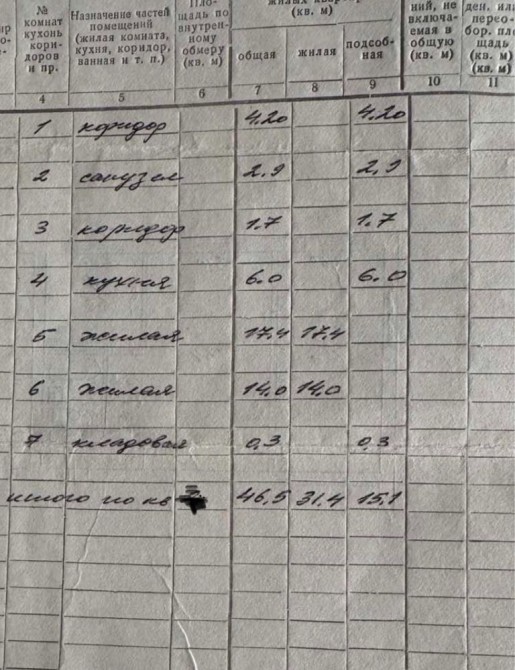 № комнат кухонь кори- доров и пр.
Назначение частей помещений (жилая комната, кухня, коридор, ванная и т. п.)
щадь по внутрен- ному обмеру (кв. м)
(кв. м)
общая жилая подсоб- ная
ний, не включа- емая в общую (кв. м)
ден. или перео- бор. пло щадь (кв. м) (кв. м)
4 5 6 7 8 9 10 11
1 коридор 4.20 4.20
2 санузел 2.9 2.9
3 коридор 1.7 1.7
4 кухня 6.0 6.0
5 жилая 17.4 17.4
6 жилая 14.0 14.0
7 кладовая 0.3 0.3
итого по кв 46.5 31.4 15.1